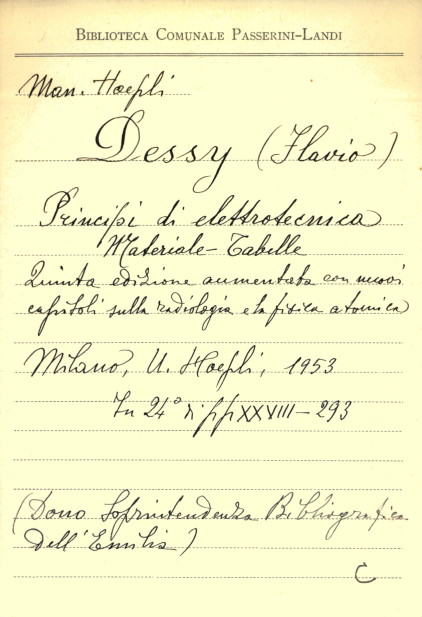 BIBLIOTECA COMUNALE PASSERINI-LANDI
Man. Hoepli
Dessy (Flavio)
Principi di elettrotecnica
Materiale - Tabelle
Quinta edizione aumentata con nuovi
capitoli sulla radiologia e la fisica atomica
Milano, U. Hoepli, 1953
In 24° di pp XXVIII - 293
(Dono Soprintendenza Bibliografica
dell'Emilia)
C